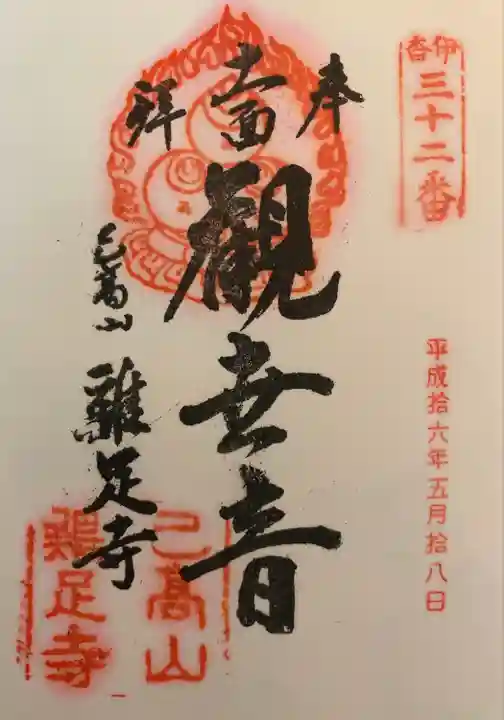 伊香
三十二番
平成拾六年五月拾八日
奉
拜
當
觀世音
己高山
雞足寺
己高山
鶏足寺